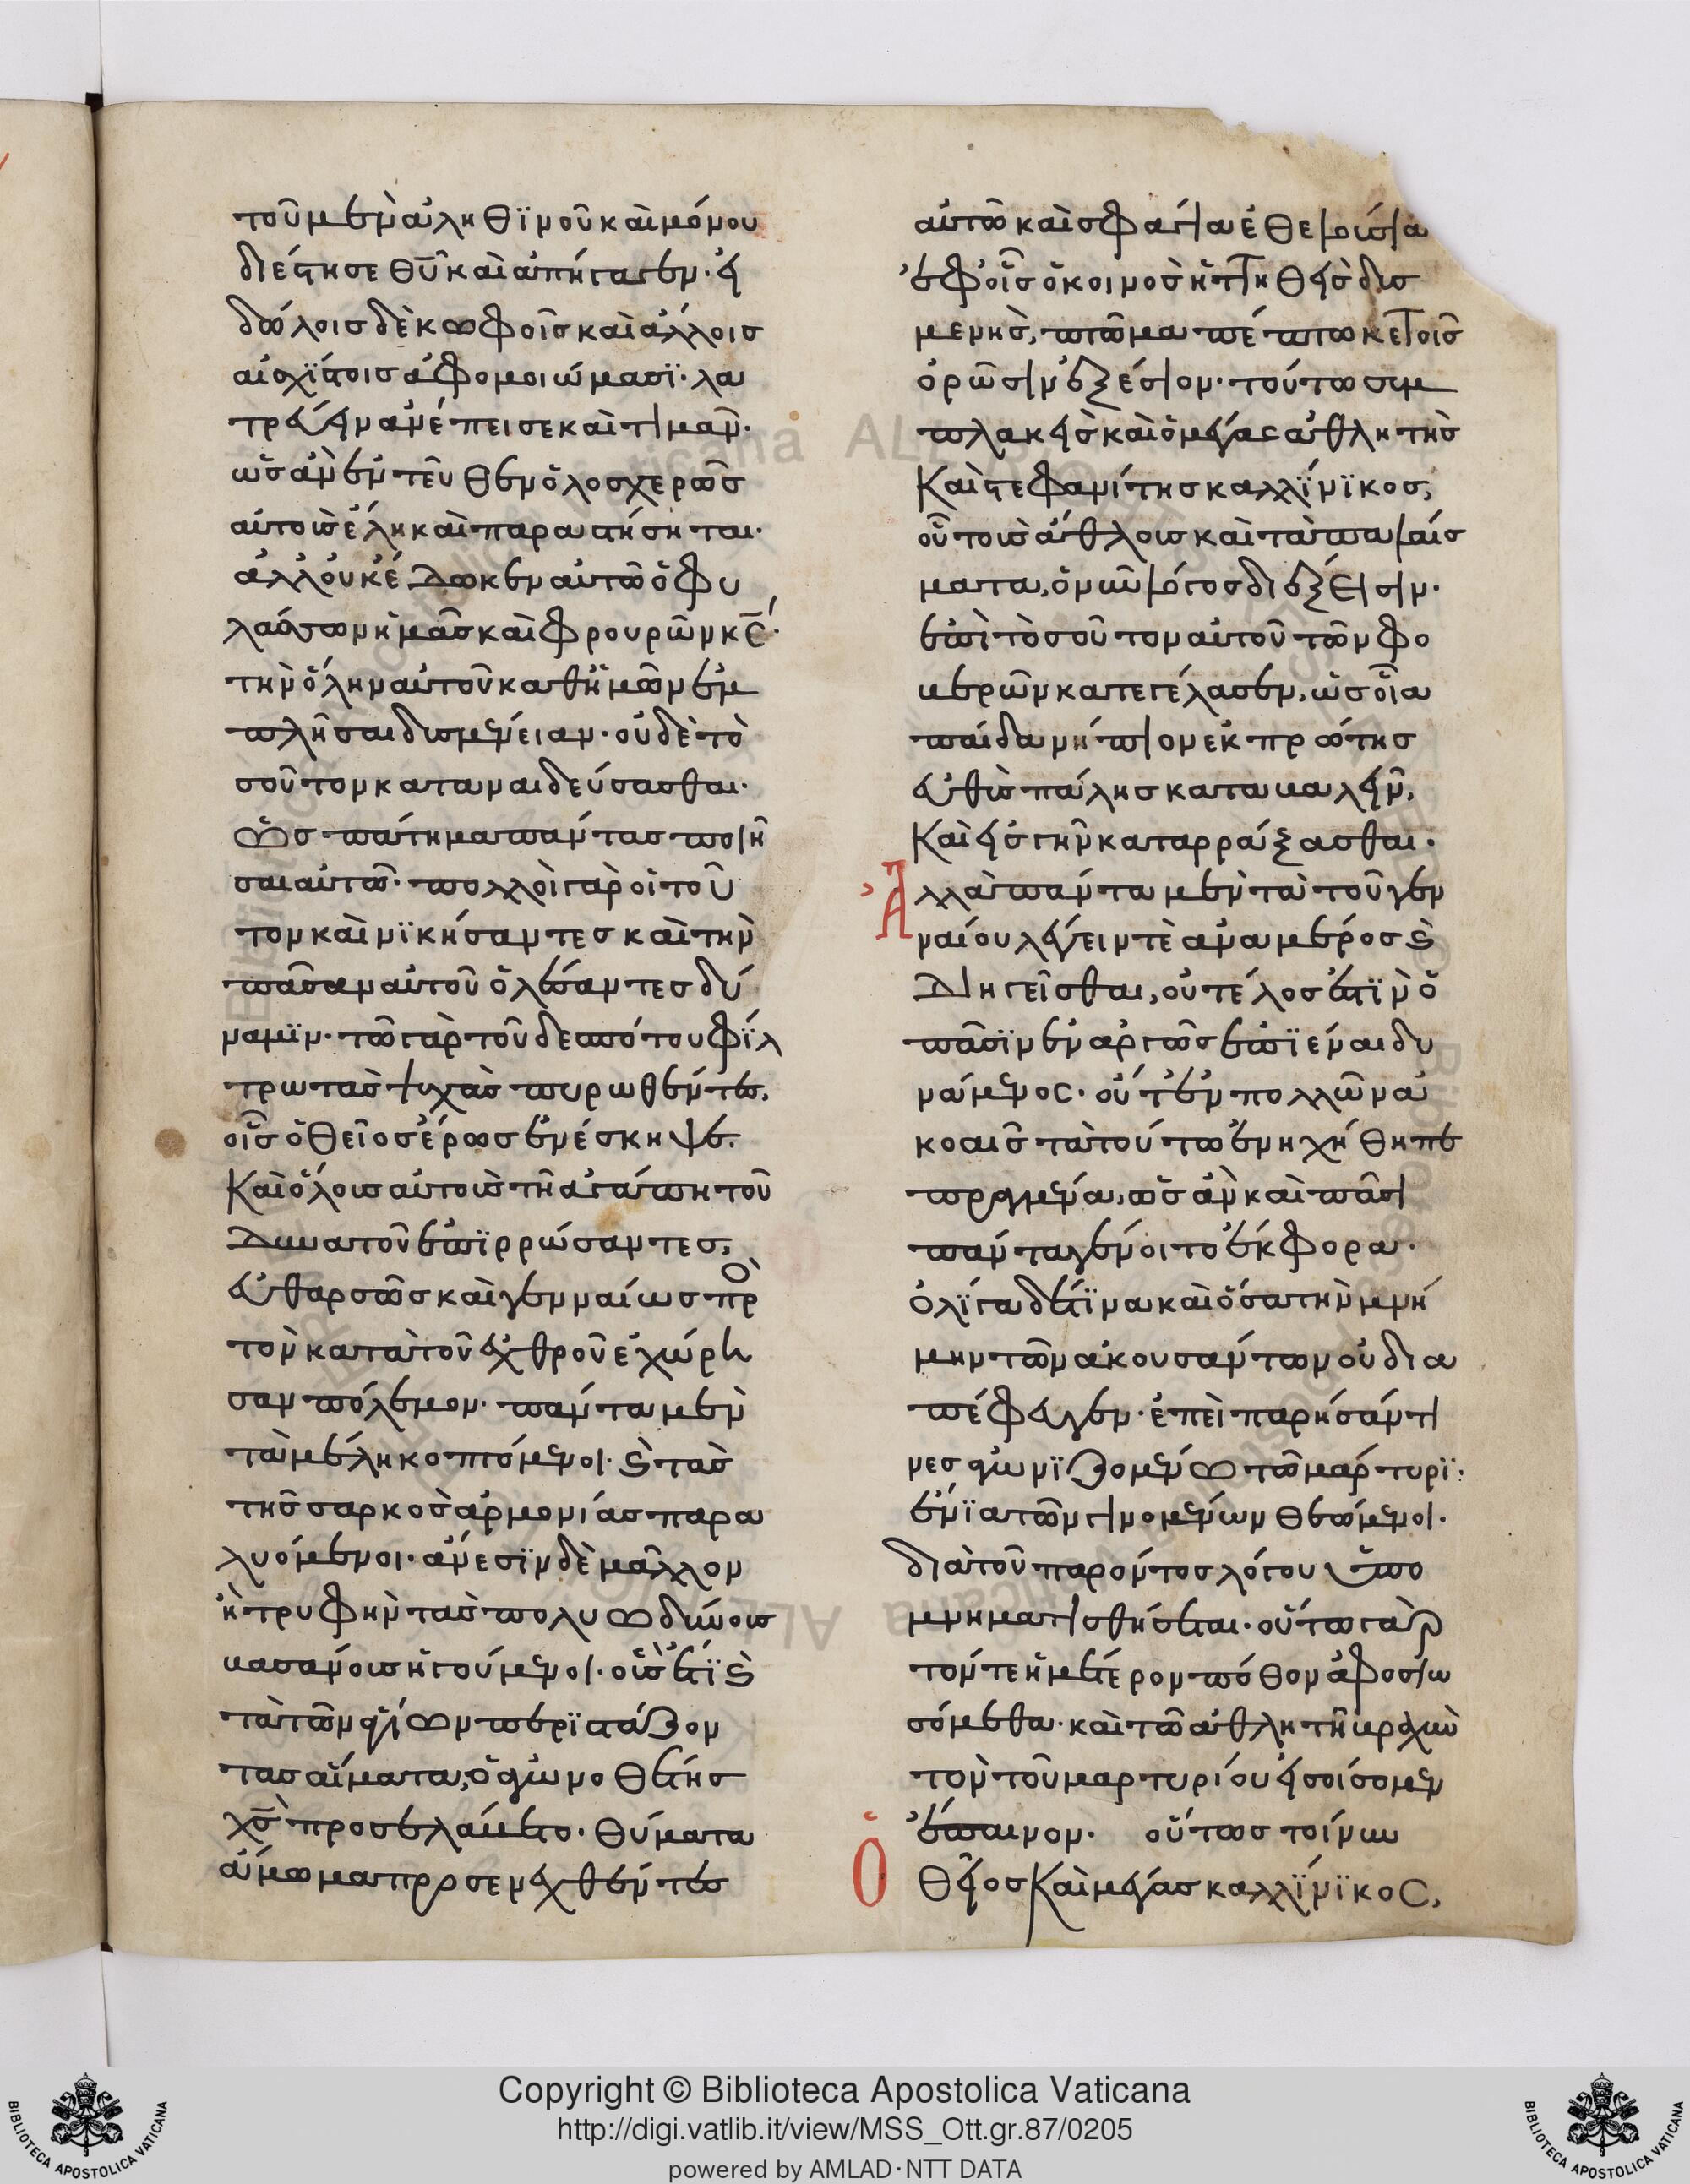 τοῦ μὲν ἀληθινοῦ καὶ μόνου
διέστησε θῦ καὶ ἀπήγαγεν· εἰ
δώλοις δὲ κωφοῖς καὶ ἄλλοις
αἰσχίστοις ἀφομοιώμασι· λα
τρεύειν ἀνέπεισε καὶ τιμᾶν·
ὡς ἂν ἐντεῦθεν ὁλοσχερῶς
αὐτοὺς ἕλη καὶ παραστήσηται·
ἀλλ' οὐκ ἔδωκεν αὐτῶ ὁ φυ
λάσσων ἡμᾶς καὶ φρουρῶν κς·
τὴν ὅλην αὐτοῦ καθ' ἡμῶν ἐμ
πλῆσαι δυσμένειαν· οὐδὲ το
σοῦτον καταναιδεύσασθαι·
ὡς πάτημα πάντας ποιῆ
σαι αὐτῶ· πολλοὶ γὰρ οἱ τοῦ
τον καὶ νικήσαντες καὶ τὴν
πᾶσαν αὐτοῦ ὀλέσαντες δύ
ναμιν· τῶ γὰρ τοῦ δεσπότου φίλ
τρω τὰς ψυχὰς πυρωθέντες,
οἷς ὁ θεῖος ἔρως ἐνέσκηψε.
Καὶ ὅλους αὐτοὺς τῆ ἀγάπη τοῦ
δυνατοῦ ἐπιρρώσαντες,
εὐθαρσῶς καὶ γενναίως πρὸς
τὸν κατὰ τοῦ ἐχθροῦ ἐχώρη
σαν πόλεμον· πάντα μὲν
τὰ μέλη κοπτόμενοι· καὶ τὰς
τῆς σαρκὸς ἁρμονίας παρα
λυόμενοι· ἄνεσιν δὲ μᾶλλον
ἢ τρυφὴν τὰς πολυωδύνους
βασάνους ἡγούμενοι· οἷς ἔτι καὶ
τὰ τῶν ἁγίων περιστάζον
τας αἵματα, ὁ ἀγωνοθέτης
χς προσεβλάβετο· θύματα
ἄμωμα προσενεχθέντες
αὐτῶ καὶ σφάγια ἐθελούσια
ἐφ' οἷς ὁ κοινὸς ἡττηθεὶς δυσ
μενὴς, πτῶμα πέπτωκε τοῖς
ὁρῶσιν ἐξαίσιον· τούτω συμ
πλακεὶς καὶ ὁ μέγας ἀθλητὴς
Καὶ στεφανίτης καλλίνικος,
οὗ τοὺς ἄθλους καὶ τὰ παλαίσ
ματα, ὁ νῦν λόγος διέξεισιν·
ἐπὶ τοσοῦτον αὐτοῦ τῶν φο
βερῶν κατεγέλασεν, ὡς οἷα
παίδα νήπιον ἐκ πρώτης
εὐθὺς πάλης καταβαλεῖν,
Καὶ εἰς γῆν καταρράξασθαι·
Ἀλλὰ πάντα μὲν τὰ τοῦ γεν
ναίου λέγειν τὲ ἀνὰ μέρος καὶ
διηγεῖσθαι, οὔτέ λός ἐστιν ὁ
πᾶσιν ἐναργῶς ἐπιέναι δυ
νάμενος· οὔτ' ἐν πολλῶν ἀ
κοαῖς τὰ τούτω ἐνηχήθη πε
πραγμένα, ὡς ἂν καὶ πᾶσι
πάντα γένοιτο ἔκφορα·
Ὀλίγα δ' ἔτι· ἵνα καὶ ὅσα τὴν μνή
μην τῶν ἀκουσάντων οὐ δια
πέφευγεν· ἐπεὶ παρῆσάν τι
νες ἀγωνιζομένω τῶ μάρτυρι·
ἔνια τῶν γινομένων θεώμενοι·
διὰ τοῦ παρόντος λόγου ὑπο
μνηματισθήσεται· οὕτω γὰρ
τόν τε ἡμέτερον πόθον ἀφοσιω
σόμεθα· καὶ τῶ ἀθλητῆ βραχὺ
τὸν τοῦ μαρτυρίου εἰσοίσομεν
ἔπαινον· οὕτως τοίνυν
Ὁ θεῖος Καὶ μέγας καλλίνικος,
Copyright © Biblioteca Apostolica Vaticana
http://digi.vatlib.it/view/MSS_Ott.gr.87/0205
powered by AMLAD·NTT DATA
BIBLIOTECA APOSTOLICA VATICANA
BIBLIOTECA APOSTOLICA VATICANA